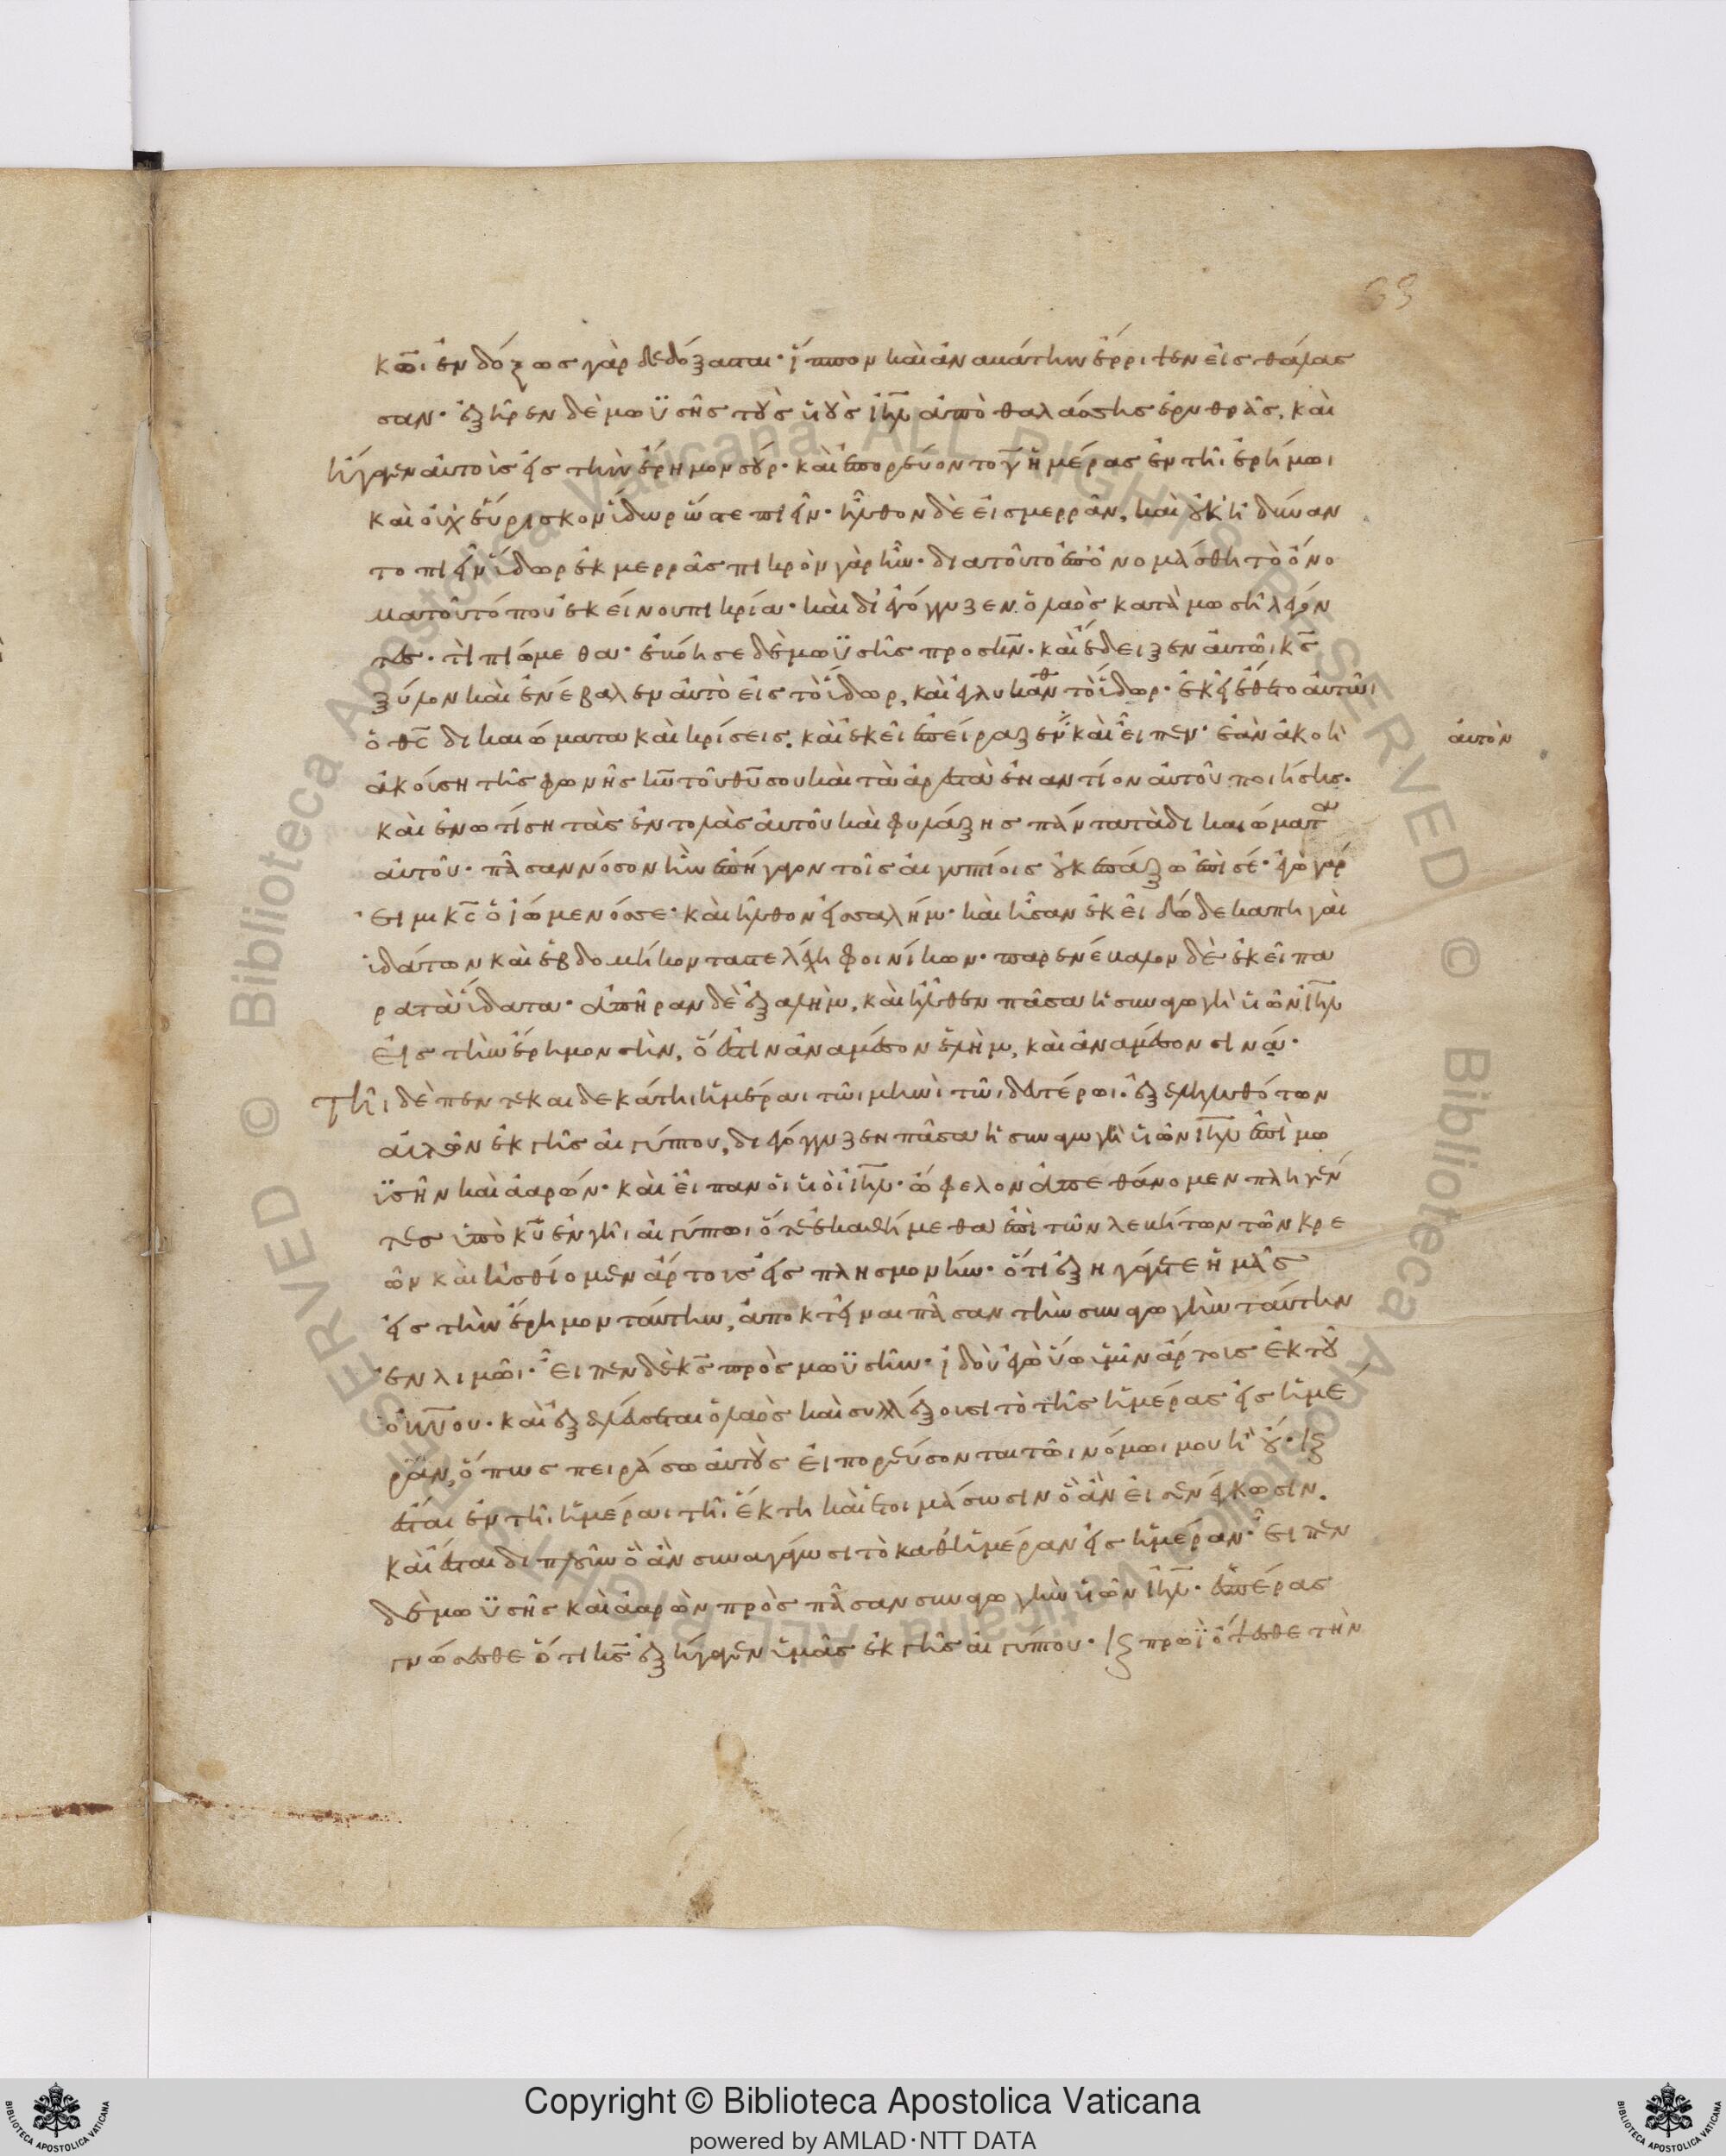 63
κω̅ι ἐνδόξως γὰρ δεδόξασται· ἵππον καὶ ἀναβάτην ἔρριψεν εἰς θάλας
σαν· ἐξῆρεν δὲ μωϋσῆς τοὺς υἱοὺς ι̅η̅λ̅ ἀπὸ θαλάσσης ἐρυθρᾶς, καὶ
ἤγαγεν αὐτοὺς εἰς τὴν ἔρημον σούρ· καὶ ἐπορεύοντο γ̅ ἡμέρας ἐν τῆι ἐρήμωι
καὶ οὐχ εὕρισκον ὕδωρ ὥστε πιεῖν· ἦλθον δὲ εἰς μερρᾶν, καὶ οὐκ ἠδύναν
το πιεῖν ὕδωρ ἐκ μερρᾶς πικρὸν γὰρ ἦν· διατοῦτο ἐπὀνομάσθη τὸ ὄνο
μα τοῦ τόπου ἐκείνου πικρία· καὶ διεγόγγυζεν ὁ λαὸς κατὰ μωσῆ λέγον
τες· τὶ πιώμεθα· ἐβόησε δὲ μωϋσῆς προς κ̅ν̅· καὶ ἔδειξεν αὐτῶι κ̅ς̅
ξύλον καὶ ἐνέβαλεν αὐτὸ εἰς τὸ ὕδωρ, καὶ ἐγλυκάνθη τὸ ὕδωρ· ἐκεῖ ἔθετο αὐτῶι
ὁ θ̅ς̅ δικαιώματα καὶ κρίσεις. καὶ ἐκεῖ ἐπείραζεν καὶ εἶπεν· ἐὰν ἀκοῆ
αὐτὸν
ἀκούση τῆς φωνῆς κ̅υ̅ τοῦ θ̅υ̅ σου καὶ τὰ ἀρεστὰ ἐναντίον αὐτοῦ ποιήσης·
καὶ ἐνωτίση τὰς ἐντολὰς αὐτοῦ καὶ φυλάξης πάντα τὰ δικαιώματα
αὐτοῦ· πᾶσαν νόσον ἣν ἐπήγαγον τοῖς αἰγυπτίοις οὐκ ἐπάξω ἐπὶ σέ· ἐγὼ γάρ
εἰμι κ̅ς̅ ὁ ἰώμενός σε· καὶ ἦλθον εἰς αλήμ· καὶ ἦσαν ἐκεῖ δώδεκα πηγαὶ
ὑδάτων καὶ ἑβδομήκοντα στελέχη φοινίκων· παρενέβαλον δὲ ἐκεῖ πα
ρα τὰ ὕδατα· ἀπῆραν δὲ ἐξ αλὴμ, καὶ ἦλθεν πᾶσα ἡ συναγωγὴ υἱῶν ι̅η̅λ̅
εἰς τὴν ἔρημον σὴν, ὅ ἐστιν ἀναμέσον ἐλὴμ, καὶ ἀναμέσον σινά·
Τῆι δὲ πεντεκαιδεκάτηι ἡμέραι τῶι μηνὶ τῶι δευτέρωι· ἐξεληλυθότων
αὐτῶν ἐκ γῆς αἰγύπτου, διεγόγγυζεν πᾶσα ἡ συναγωγὴ υἱῶν ι̅η̅λ̅ ἐπὶ μω
ϋσῆν καὶ ἀαρών· καὶ εἶπαν οἱ υἱοὶ ι̅η̅λ̅· ὤφελον ἀπεθάνομεν πληγέν
τες ὑπὸ κ̅υ̅ ἐν γῆι αἰγύπτωι ὅτε ἐκαθήμεθα ἐπὶ τῶν λεβήτων τῶν κρε
ῶν καὶ ἠσθίομεν ἄρτους εἰς πλησμονήν· ὅτι ἐξηγάγετε ἡμᾶς
εἰς τὴν ἔρημον ταύτην, ἀποκτεῖναι πᾶσαν τὴν συναγωγὴν ταύτην
ἐν λιμῶι· εἶπεν δὲ κ̅ς̅ πρὸς μωϋσῆν· ἰδοὺ ἐγὼ ὕω ὑμῖν ἄρτους ἐκ τοῦ
οὐ̅ν̅ου· καὶ ἐξελεύσεται ὁ λαὸς καὶ συλλέξουσι τὸ τῆς ἡμέρας εἰς ἡμέ
ραν, ὅπως πειράσω αὐτοὺς εἰ πορεύσονται τῶι νόμωι μου ἢ οὔ· κ(αὶ)
ἔσται ἐν τῆι ἡμέραι τῆι ἕκτη καὶ ἑτοιμάσωσιν ὃ ἂν εἰσενέγκωσιν.
καὶ ἔσται διπλοῦν ὃ ἂν συναγάγωσι τὸ καθἡμέραν εἰς ἡμέραν· εἶπεν
δὲ μωϋσῆς καὶ ἀαρὼν πρὸς πᾶσαν συναγωγὴν υἱῶν ι̅η̅λ̅· ἑσπέρας
γνώσεσθε ὅτι κ̅ς̅ ἐξήγαγεν ὑμᾶς ἐκ γῆς αἰγύπτου· κ(αὶ) πρωῒ ὄψεσθε τὴν
Copyright © Biblioteca Apostolica Vaticana
powered by AMLAD·NTT DATA